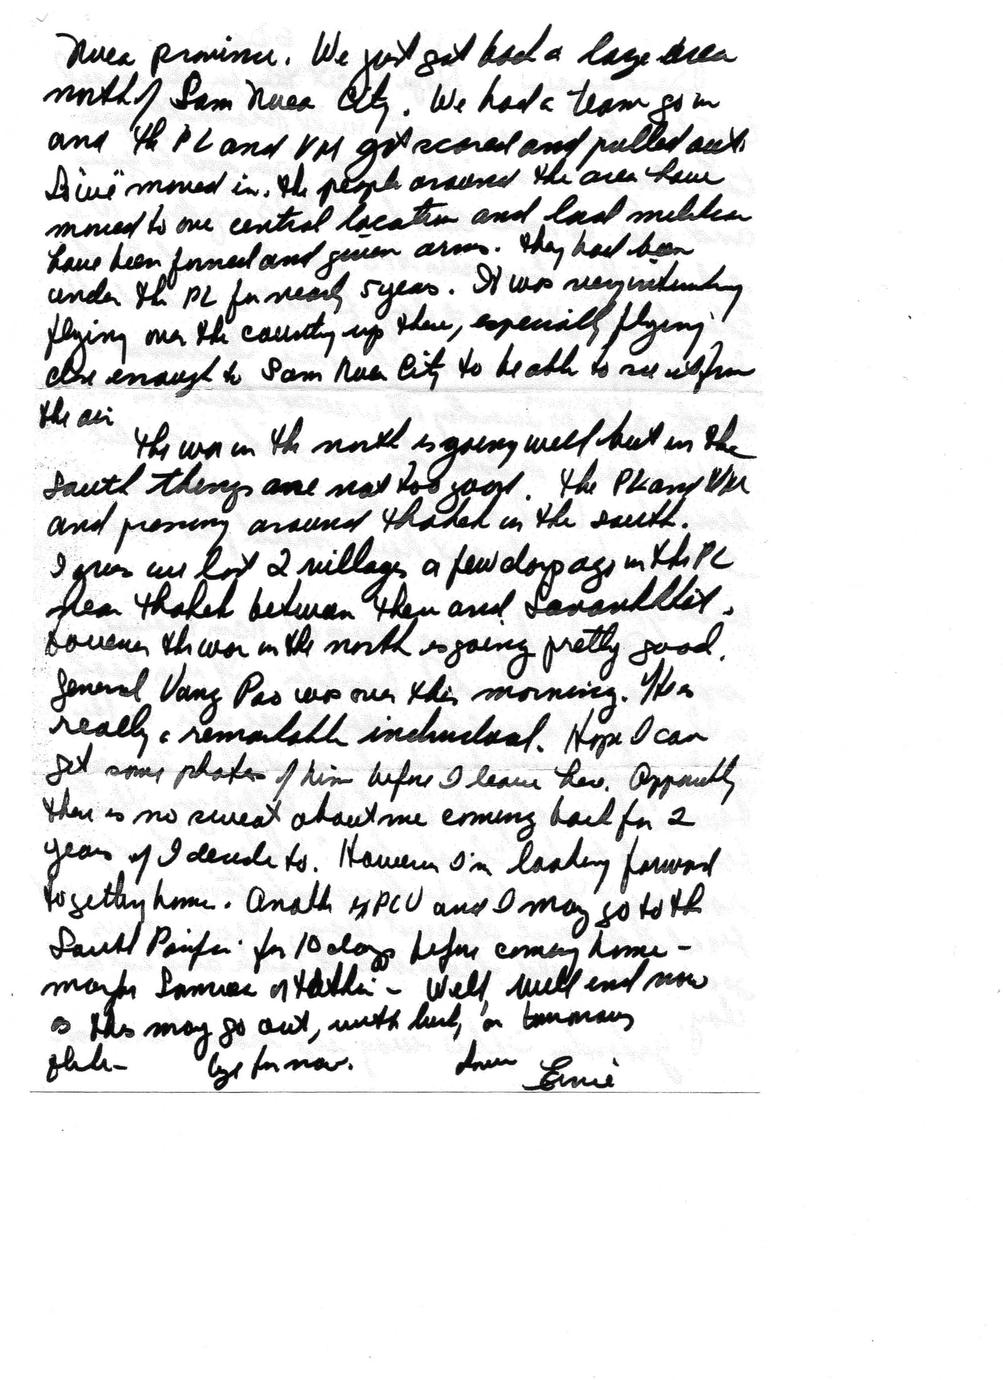 Nuea province. We just got back a large area
north of Sam Nuea City. We had a team go in
and the PL and VM got scared and pulled out.
So "we" moved in. The people around the area have
moved to one central location and local militia
have been formed and given arms. They had been
under the PL for nearly 5 years. It was very interesting
flying over the country up there, especially flying
close enough to Sam Nuea City to be able to see it from
the air
The war in the north is going well but in the
south things are not too good. The PL and VM
and pressing around Thakek in the south.
I guess we lost 2 villages a few days ago in the PL
near Thakek between them and Savankhet.
However the war in the north is going pretty good.
General Vang Pao was over this morning. He is
really a remarkable individual. Hope I can
get some photos of him before I leave here. Apparently
there is no sweat about me coming back for 2
years if I decide to. However I'm looking forward
to getting home. Another PCV and I may go to the
South Pacific for 10 days before coming home -
maybe Samoa or Tahiti - Well, will end now
as this may go out, with luck, on tomorrows
plane - bye for now. Love
Ernie